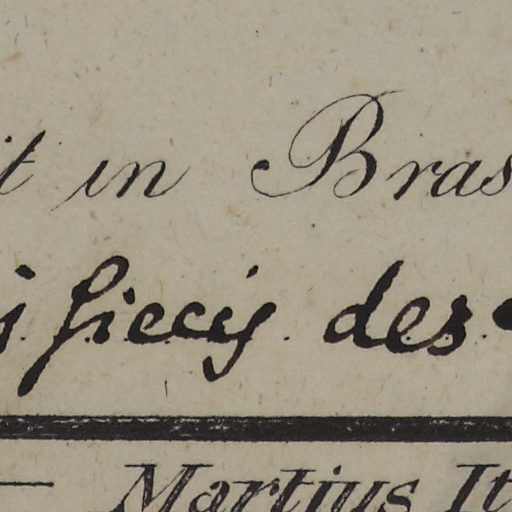 it in Bras
des
— Martius It